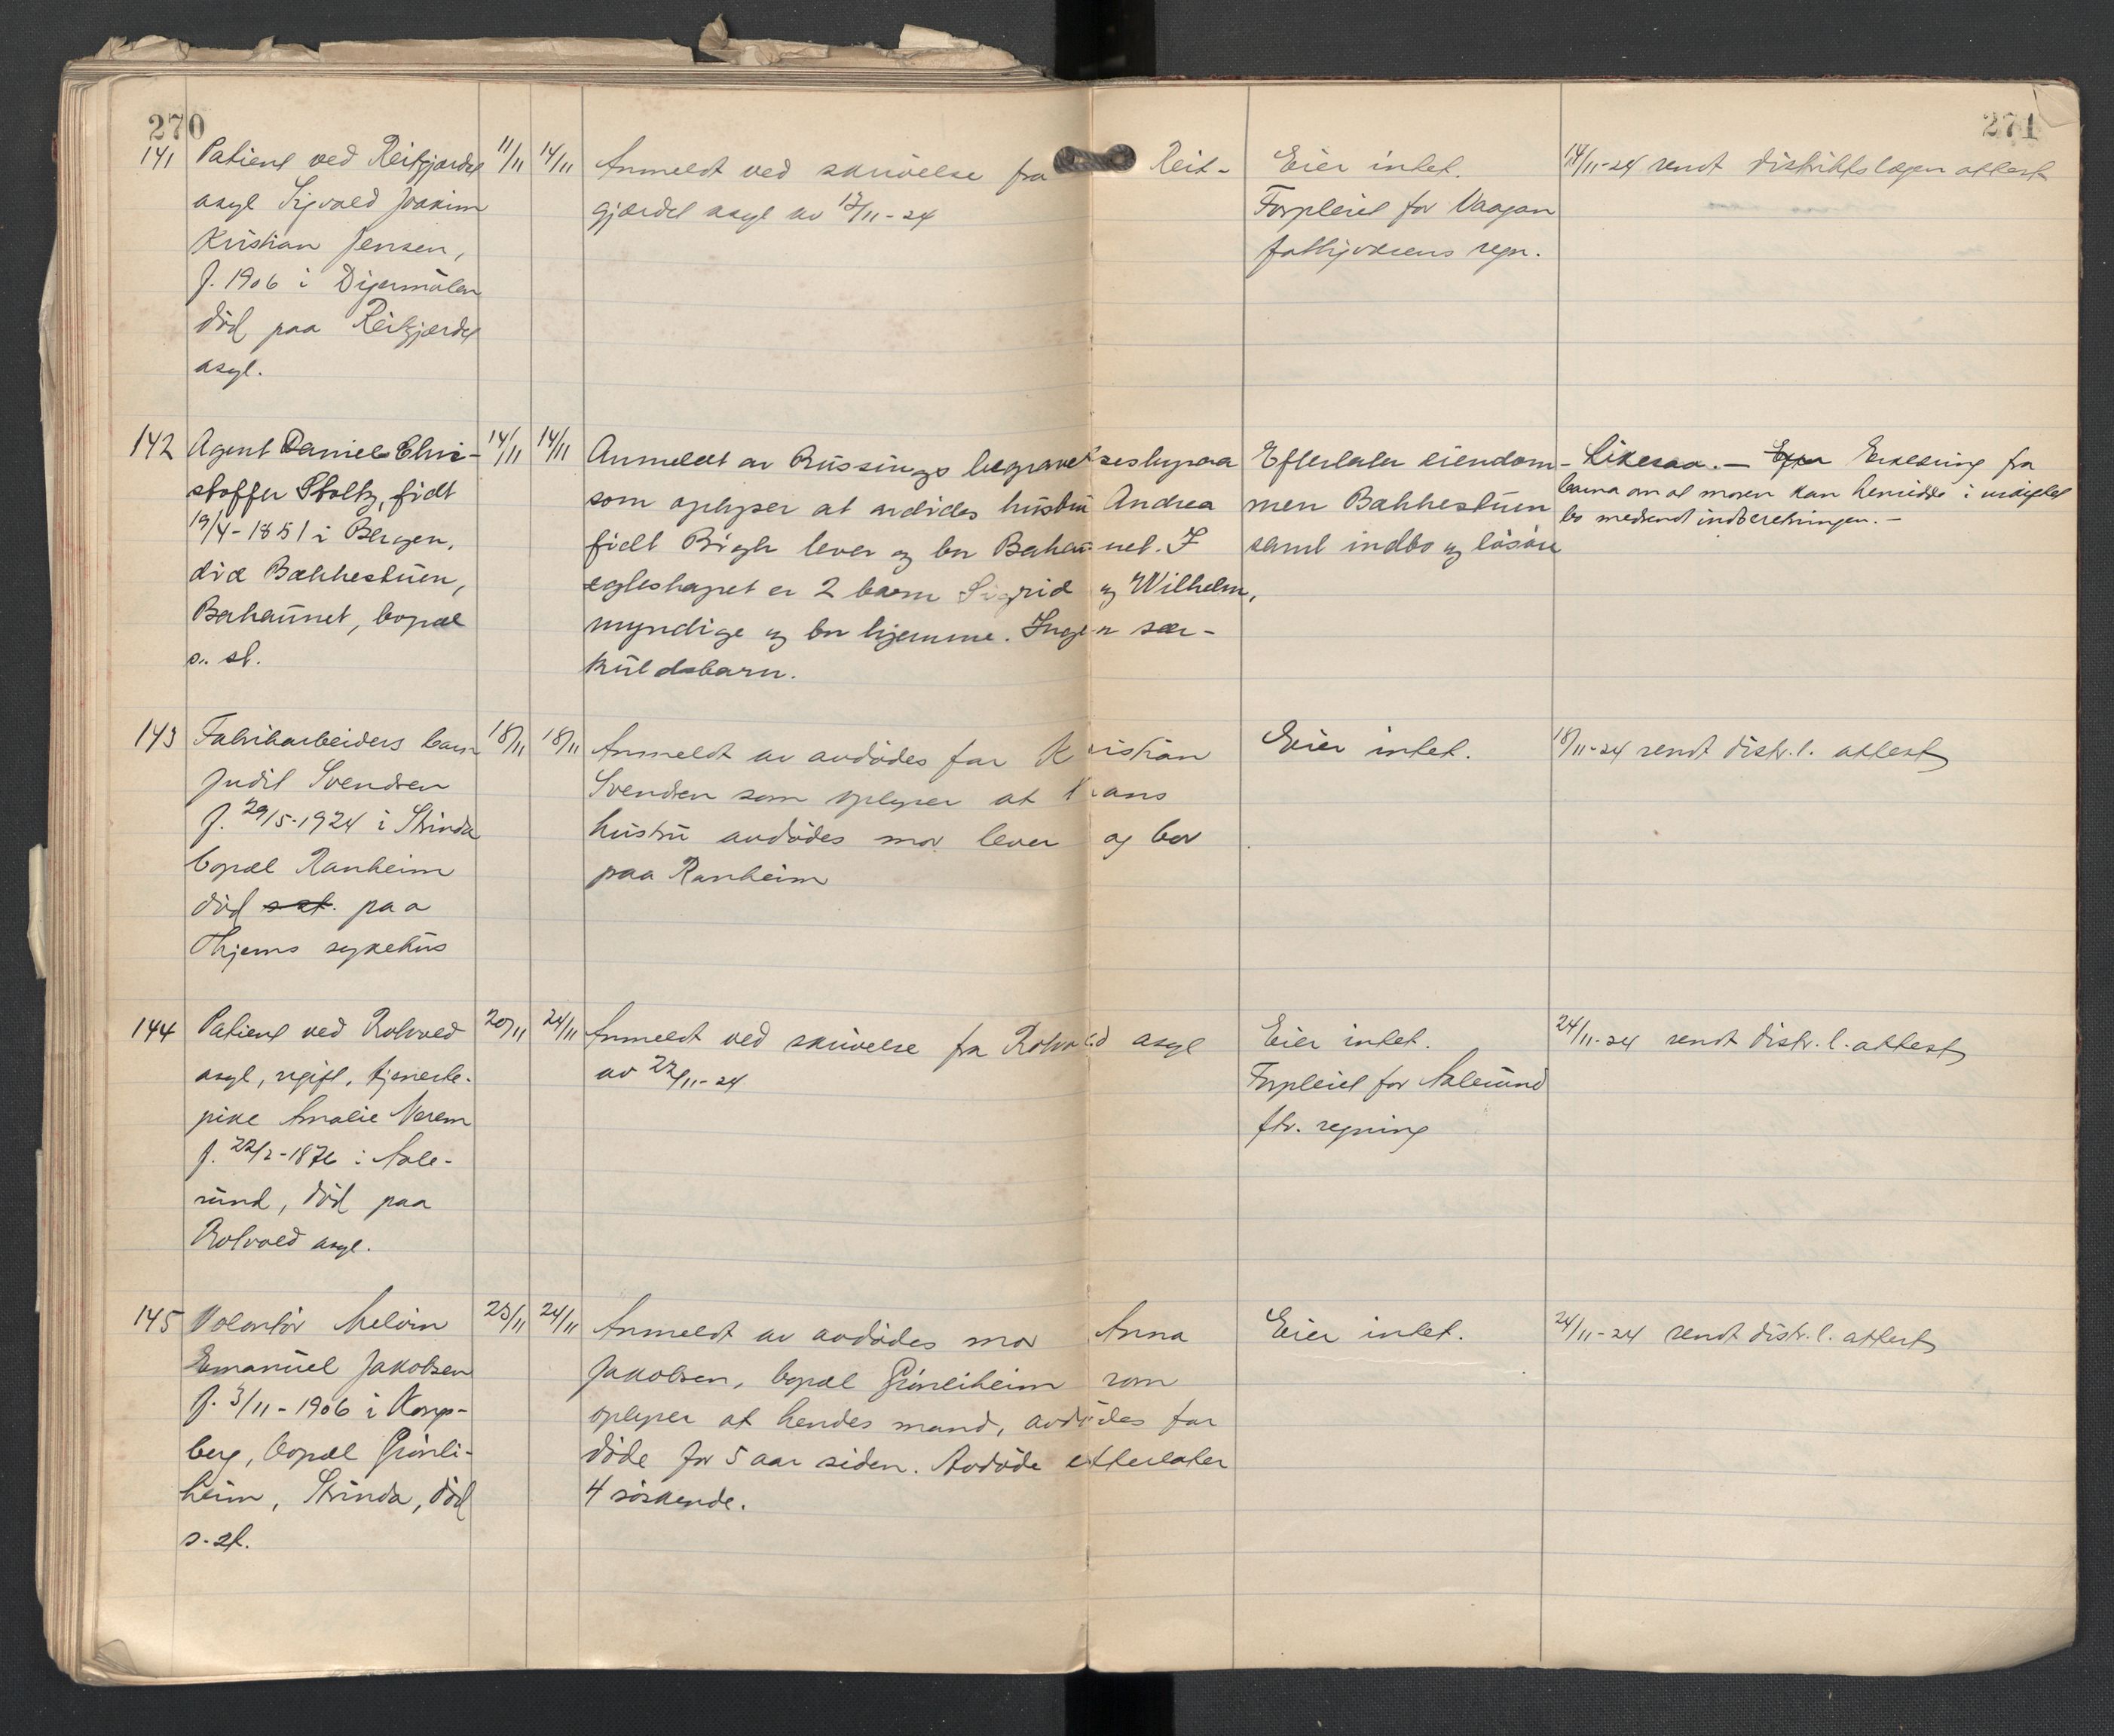 270
271
141 Patient ved Reitgjærdet 11/11 14/11
asyl Sigvald Joakim
Kristian Jensen,
f. 1906 i Digermulen
död paa Reitgjærdet
asyl.
Anmeldt ved skrivelse fra Reit-
gjærdet asyl av 12/11-24
Eier intet.
Forpleiet for Vaagan
fattigvæsens regn.
14/11-24 sendt distriktslægen attest
142 Agent Daniel Chri- 14/11 14/11
stoffer Stoltz, födt
19/4-1851 i Bergen,
död Bakkestuen,
Bakaunet, bopæl
s. st.
Anmeldt av Russings begravelsesbyraa
som oplyser at avdödes hustru Andrea
födt Brigh lever og bor Bakaunet. I
egteskapet er 2 barn Sigrid og Wilhelm,
myndige og bor hjemme. Ingen sær-
kuldsbarn.
Efterlater eiendom-
men Bakkestuen
samt indbo og lösöre
Likesaa. — Erklæring fra
barna om at moren kan hensidde i uskiftet
bo medsendt indberetningen. —
143 Fabrikarbeiders barn 18/11 18/11
Judit Svendsen
f. 29/5-1924 i Strinda
bopæl Ranheim
död s. st. paa
Thjems sykehus
Anmeldt av avdödes far Kristian
Svendsen som oplyser at hans
hustru avdödes mor lever og bor
paa Ranheim
Eier intet.
18/11-24 sendt distr. l. attest
144 Patient ved Rotvold 20/11 24/11
asyl, ugift, tjeneste-
pike Amalie Nerem
f. 22/2-1876 i Aale-
sund, död paa
Rotvold asyl.
Anmeldt ved skrivelse fra Rotvold asyl
av 22/11-24
Eier intet.
Forpleiet for Aalesund
ftv. regning
24/11-24 sendt distr. l. attest
145 Volontör Melvin 23/11 24/11
Emanuel Jakobsen
f. 3/11-1906 i Kongs-
berg, bopæl Grönli-
heim, Strinda, död
s. st.
Anmeldt av avdödes mor Anna
Jakobsen, bopæl Grönliheim som
oplyser at hendes mand, avdödes far
döde for 5 aar siden. Avdöde efterlater
4 söskende.
Eier intet.
24/11-24 sendt distr. l. attest